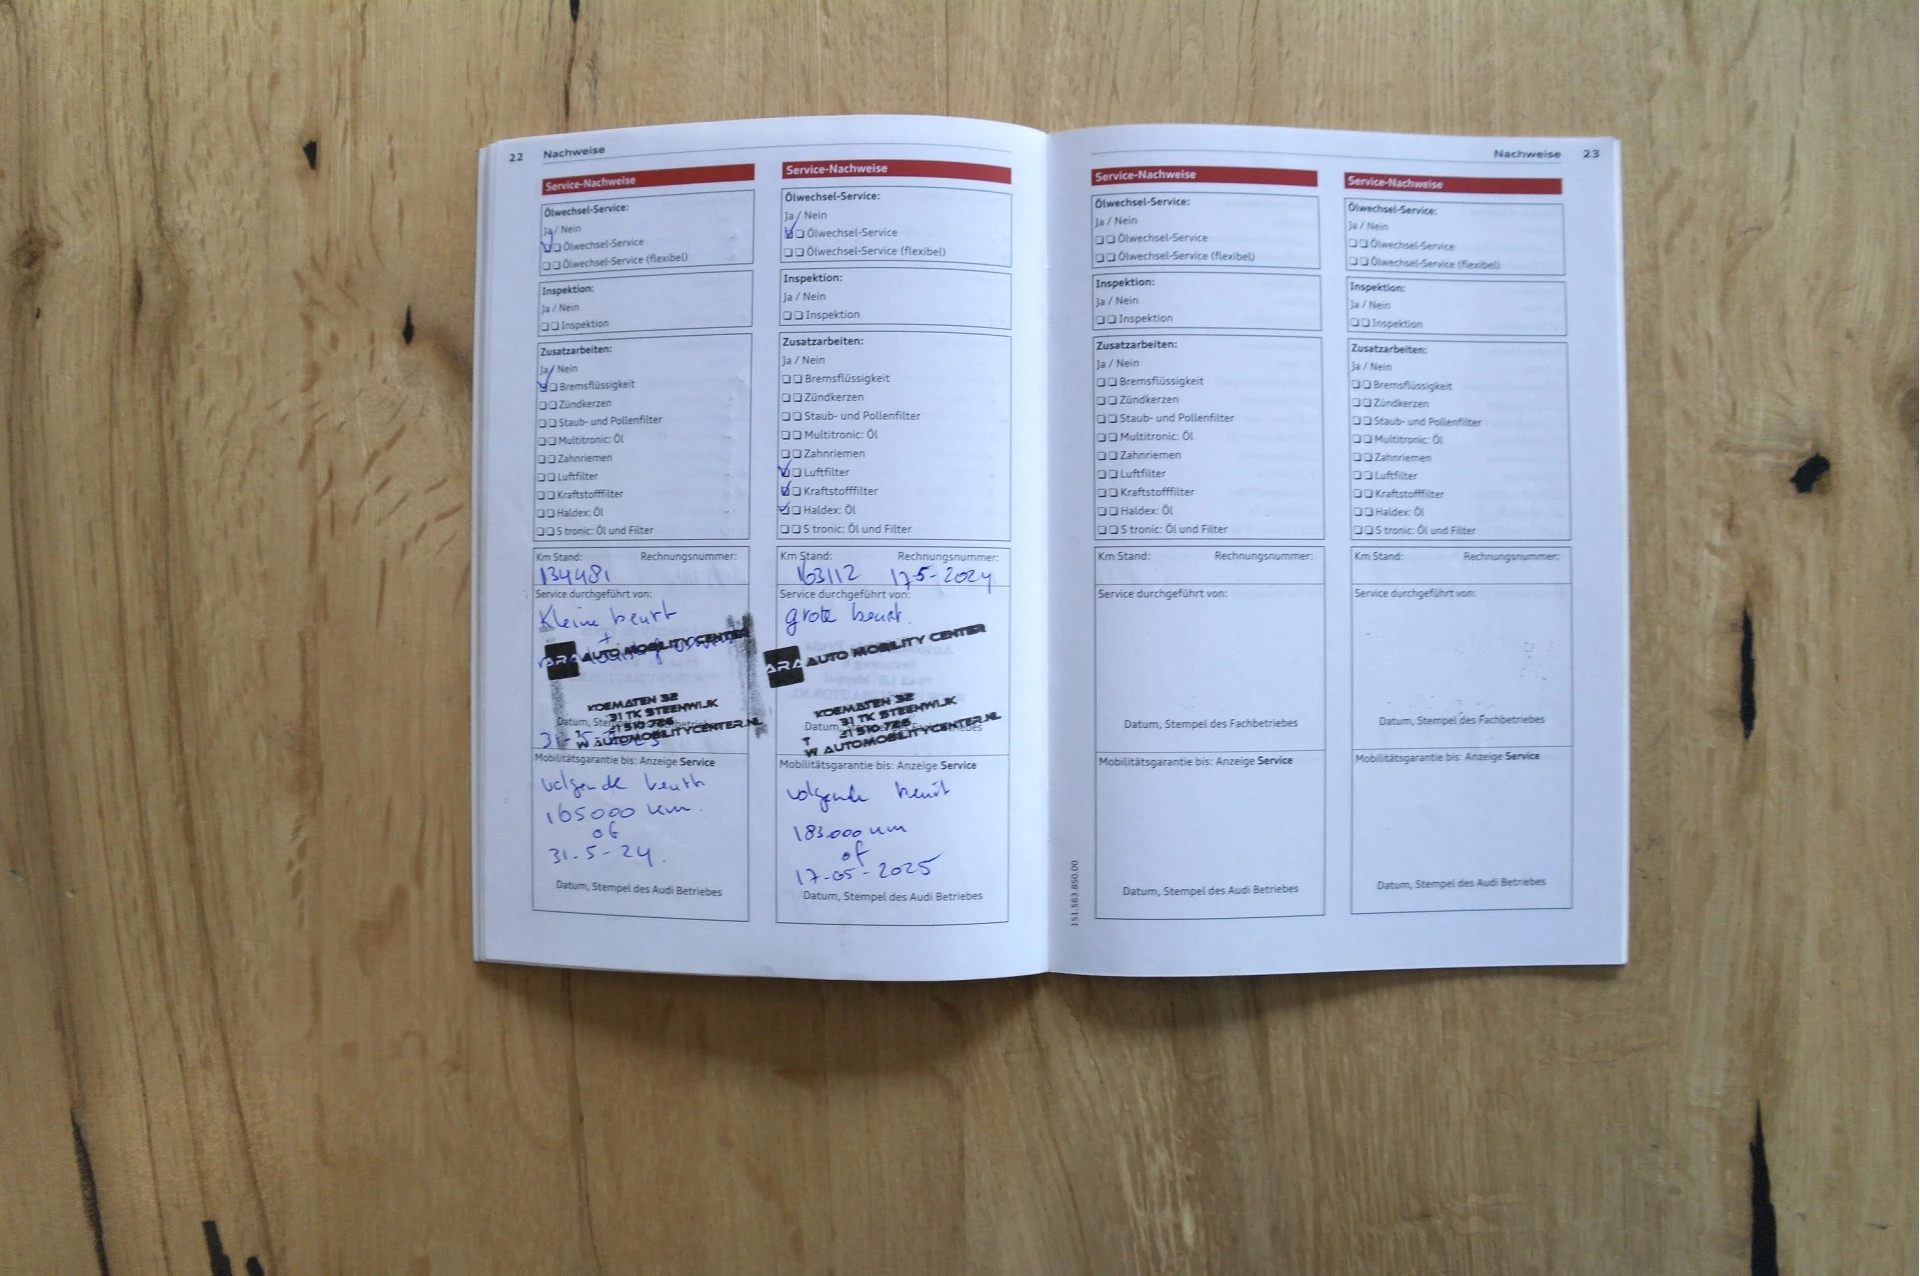 22 Nachweise
Service-Nachweise
Ölwechsel-Service:
Ja / Nein
Ölwechsel-Service
Ölwechsel-Service (flexibel)
Inspektion:
Ja / Nein
Inspektion
Zusatzarbeiten:
Ja / Nein
Bremsflüssigkeit
Zündkerzen
Staub- und Pollenfilter
Multitronic: Öl
Zahnriemen
Luftfilter
Kraftstofffilter
Haldex: Öl
S tronic: Öl und Filter
Km Stand: Rechnungsnummer:
134481
Service durchgeführt von:
Kleine beurt
+
ARA AUTO MOBILITY CENTER
KOEMATEN 32
31 TK STEENWIJK
21 510 726
W AUTOMOBILITYCENTER.NL
Mobilitätsgarantie bis: Anzeige Service
volgende beurt
165000 km.
of
31-5-24.
Datum, Stempel des Audi Betriebes
Service-Nachweise
Ölwechsel-Service:
Ja / Nein
Ölwechsel-Service
Ölwechsel-Service (flexibel)
Inspektion:
Ja / Nein
Inspektion
Zusatzarbeiten:
Ja / Nein
Bremsflüssigkeit
Zündkerzen
Staub- und Pollenfilter
Multitronic: Öl
Zahnriemen
Luftfilter
Kraftstofffilter
Haldex: Öl
S tronic: Öl und Filter
Km Stand: Rechnungsnummer:
163112 17-5-2024
Service durchgeführt von:
grote beurt.
ARA AUTO MOBILITY CENTER
KOEMATEN 32
31 TK STEENWIJK
21 510 726
T
W AUTOMOBILITYCENTER.NL
Mobilitätsgarantie bis: Anzeige Service
volgende beurt
183.000 km
of
17-05-2025
Datum, Stempel des Audi Betriebes
Nachweise 23
Service-Nachweise
Ölwechsel-Service:
Ja / Nein
Ölwechsel-Service
Ölwechsel-Service (flexibel)
Inspektion:
Ja / Nein
Inspektion
Zusatzarbeiten:
Ja / Nein
Bremsflüssigkeit
Zündkerzen
Staub- und Pollenfilter
Multitronic: Öl
Zahnriemen
Luftfilter
Kraftstofffilter
Haldex: Öl
S tronic: Öl und Filter
Km Stand: Rechnungsnummer:
Service durchgeführt von:
Datum, Stempel des Fachbetriebes
Mobilitätsgarantie bis: Anzeige Service
Datum, Stempel des Audi Betriebes
151.563.850.00
Service-Nachweise
Ölwechsel-Service:
Ja / Nein
Ölwechsel-Service
Ölwechsel-Service (flexibel)
Inspektion:
Ja / Nein
Inspektion
Zusatzarbeiten:
Ja / Nein
Bremsflüssigkeit
Zündkerzen
Staub- und Pollenfilter
Multitronic: Öl
Zahnriemen
Luftfilter
Kraftstofffilter
Haldex: Öl
S tronic: Öl und Filter
Km Stand: Rechnungsnummer:
Service durchgeführt von:
Datum, Stempel des Fachbetriebes
Mobilitätsgarantie bis: Anzeige Service
Datum, Stempel des Audi Betriebes